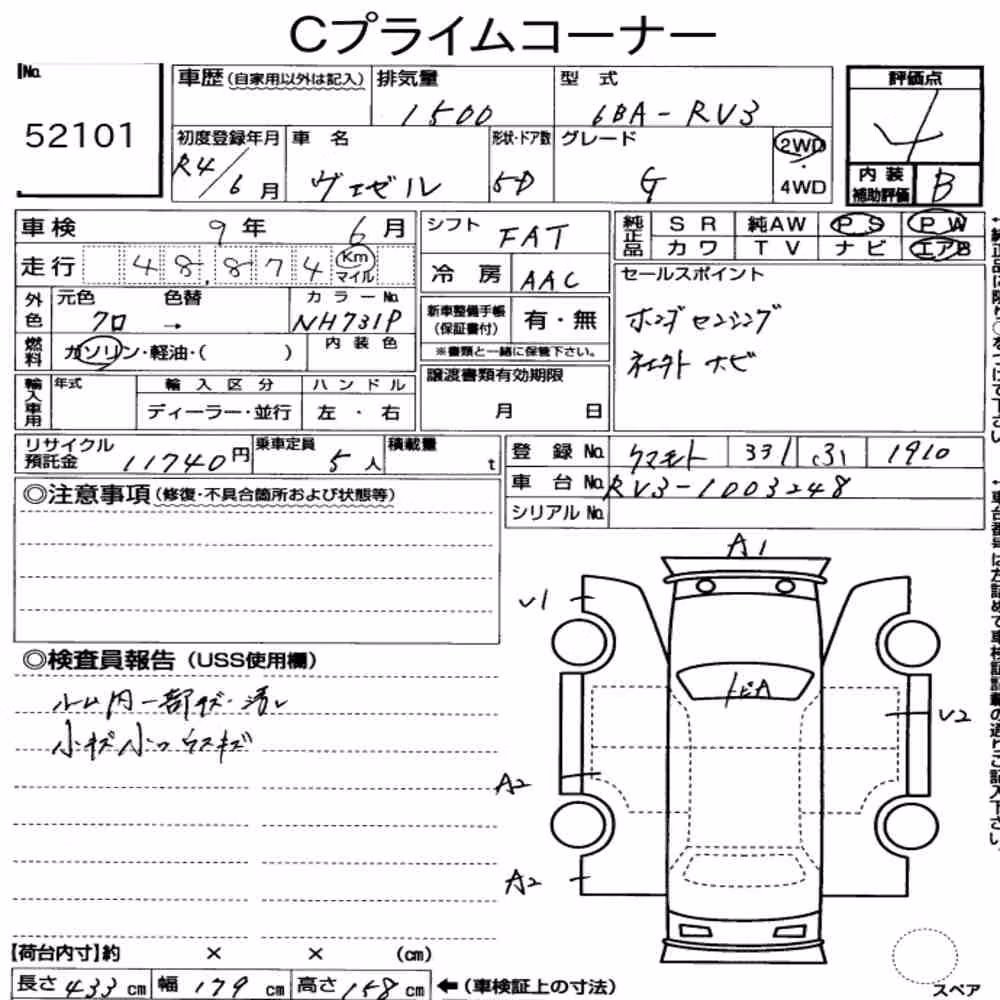 Cプライムコーナー
No.
52101
車歴(自家用以外は記入) 排気量 型式
1500 6BA-RV3
初度登録年月 車名 形状・ドア数 グレード 2WD
R4/6月 ヴェゼル 5D G 4WD
評価点
4
内装補助評価 B
車検 9年 6月 シフト FAT
純正品 SR 純AW PS PW
カワ TV ナビ エアB
走行 48,874 Km マイル 冷房 AAC
セールスポイント
ホンダセンシング
ネエクト ナビ
外色 元色 色替 カラーNo.
クロ → NH731P
新車整備手帳(保証書付) 有・無
※書類と一緒に保管下さい。
燃料 ガソリン・軽油・( ) 内装色
輸入車用 年式 輸入区分 ハンドル
ディーラー・並行 左・右
譲渡書類有効期限
月 日
リサイクル預託金 11740円 乗車定員 5人 積載量 t
登録No. クマモト 331 1910
車台No. RV3-1003248
シリアルNo.
◎注意事項(修復・不具合箇所および状態等)
◎検査員報告(USS使用欄)
ルーム内一部キズ・汚レ
小キズ小凹ウスキズ
A1
V1
トビA
V2
A2
A2
スペア
【荷台内寸】約 × × (cm)
長さ 433cm 幅 179cm 高さ 158cm ←(車検証上の寸法)